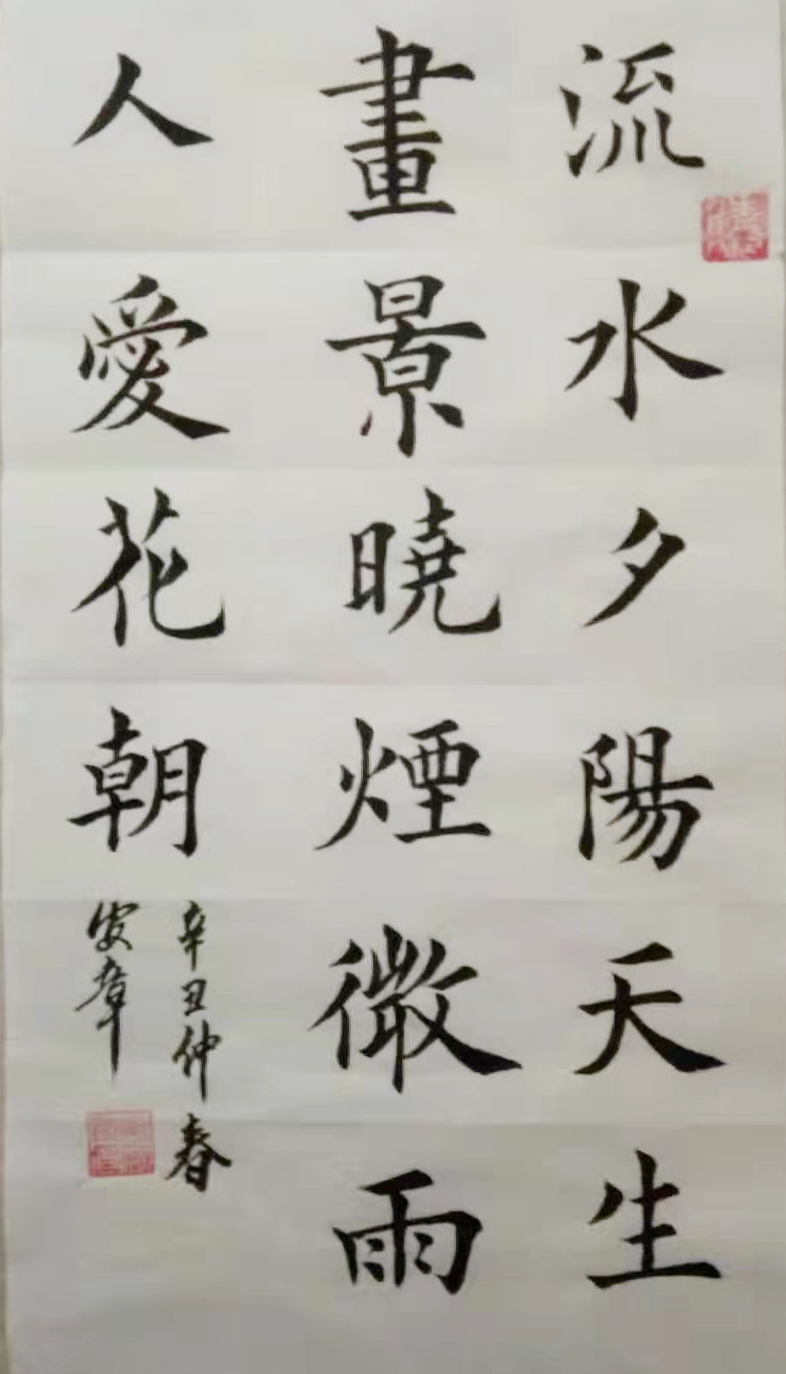 流水夕陽天生
畫景曉煙微雨
人愛花朝
辛丑仲春
安章